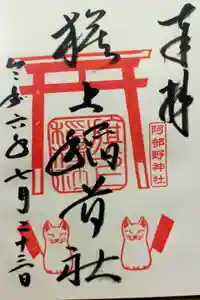 奉拝
旗上稲荷社
阿部野神社
令和六年七月二十三日